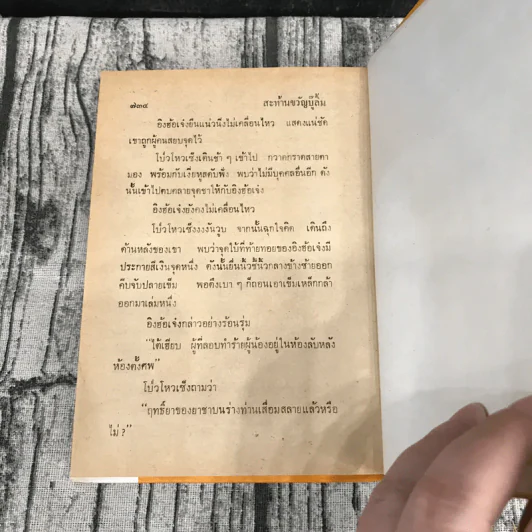 ๗๓๔ สะท้านขวัญบู๊ลิ้ม
อิงฮ้อเจ่งยืนแน่วนิ่งไม่เคลื่อนไหว แสดงแน่ชัด
เขาถูกผู้คนสยบจุดไว้
โบ้วโหวเซ็งเดินช้า ๆ เข้าไป กวาดกราดสายตา
มอง พร้อมกับเงี่ยหูสดับฟัง พบว่าไม่มีบุคคลอื่นอีก ดัง
นั้นเข้าไปตบคลายจุดชาให้กับอิงฮ้อเจ่ง
อิงฮ้อเจ่งยังคงไม่เคลื่อนไหว
โบ้วโหวเซ็งงงงันวูบ จากนั้นฉุกใจคิด เดินถึง
ด้านหลังของเขา พบว่าจุดไป๋ที่ท้ายทอยของอิงฮ้อเจ่งมี
ประกายสีเงินจุดหนึ่ง ดังนั้นยื่นนิ้วชี้นิ้วกลางข้างซ้ายออก
คีบจับปลายเข็ม พอดึงเบา ๆ ก็ถอนเอาเข็มเหล็กกล้า
ออกมาเล่มหนึ่ง
อิงฮ้อเจ่งกล่าวอย่างร้อนรุ่ม
"ไต้เฮียบ ผู้ที่ลอบทำร้ายผู้น้องอยู่ในห้องลับหลัง
ห้องตั้งศพ"
โบ้วโหวเซ็งถามว่า
"ฤทธิ์ยาของยาชาบนร่างท่านเสื่อมสลายแล้วหรือ
ไม่ ?"